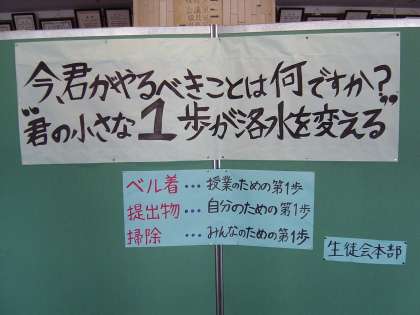 今、君がやるべきことは何ですか?
"君の小さな1歩が洛水を変える"
ベル着…授業のための第1歩
提出物…自分のための第1歩
掃除…みんなのための第1歩
生徒会本部